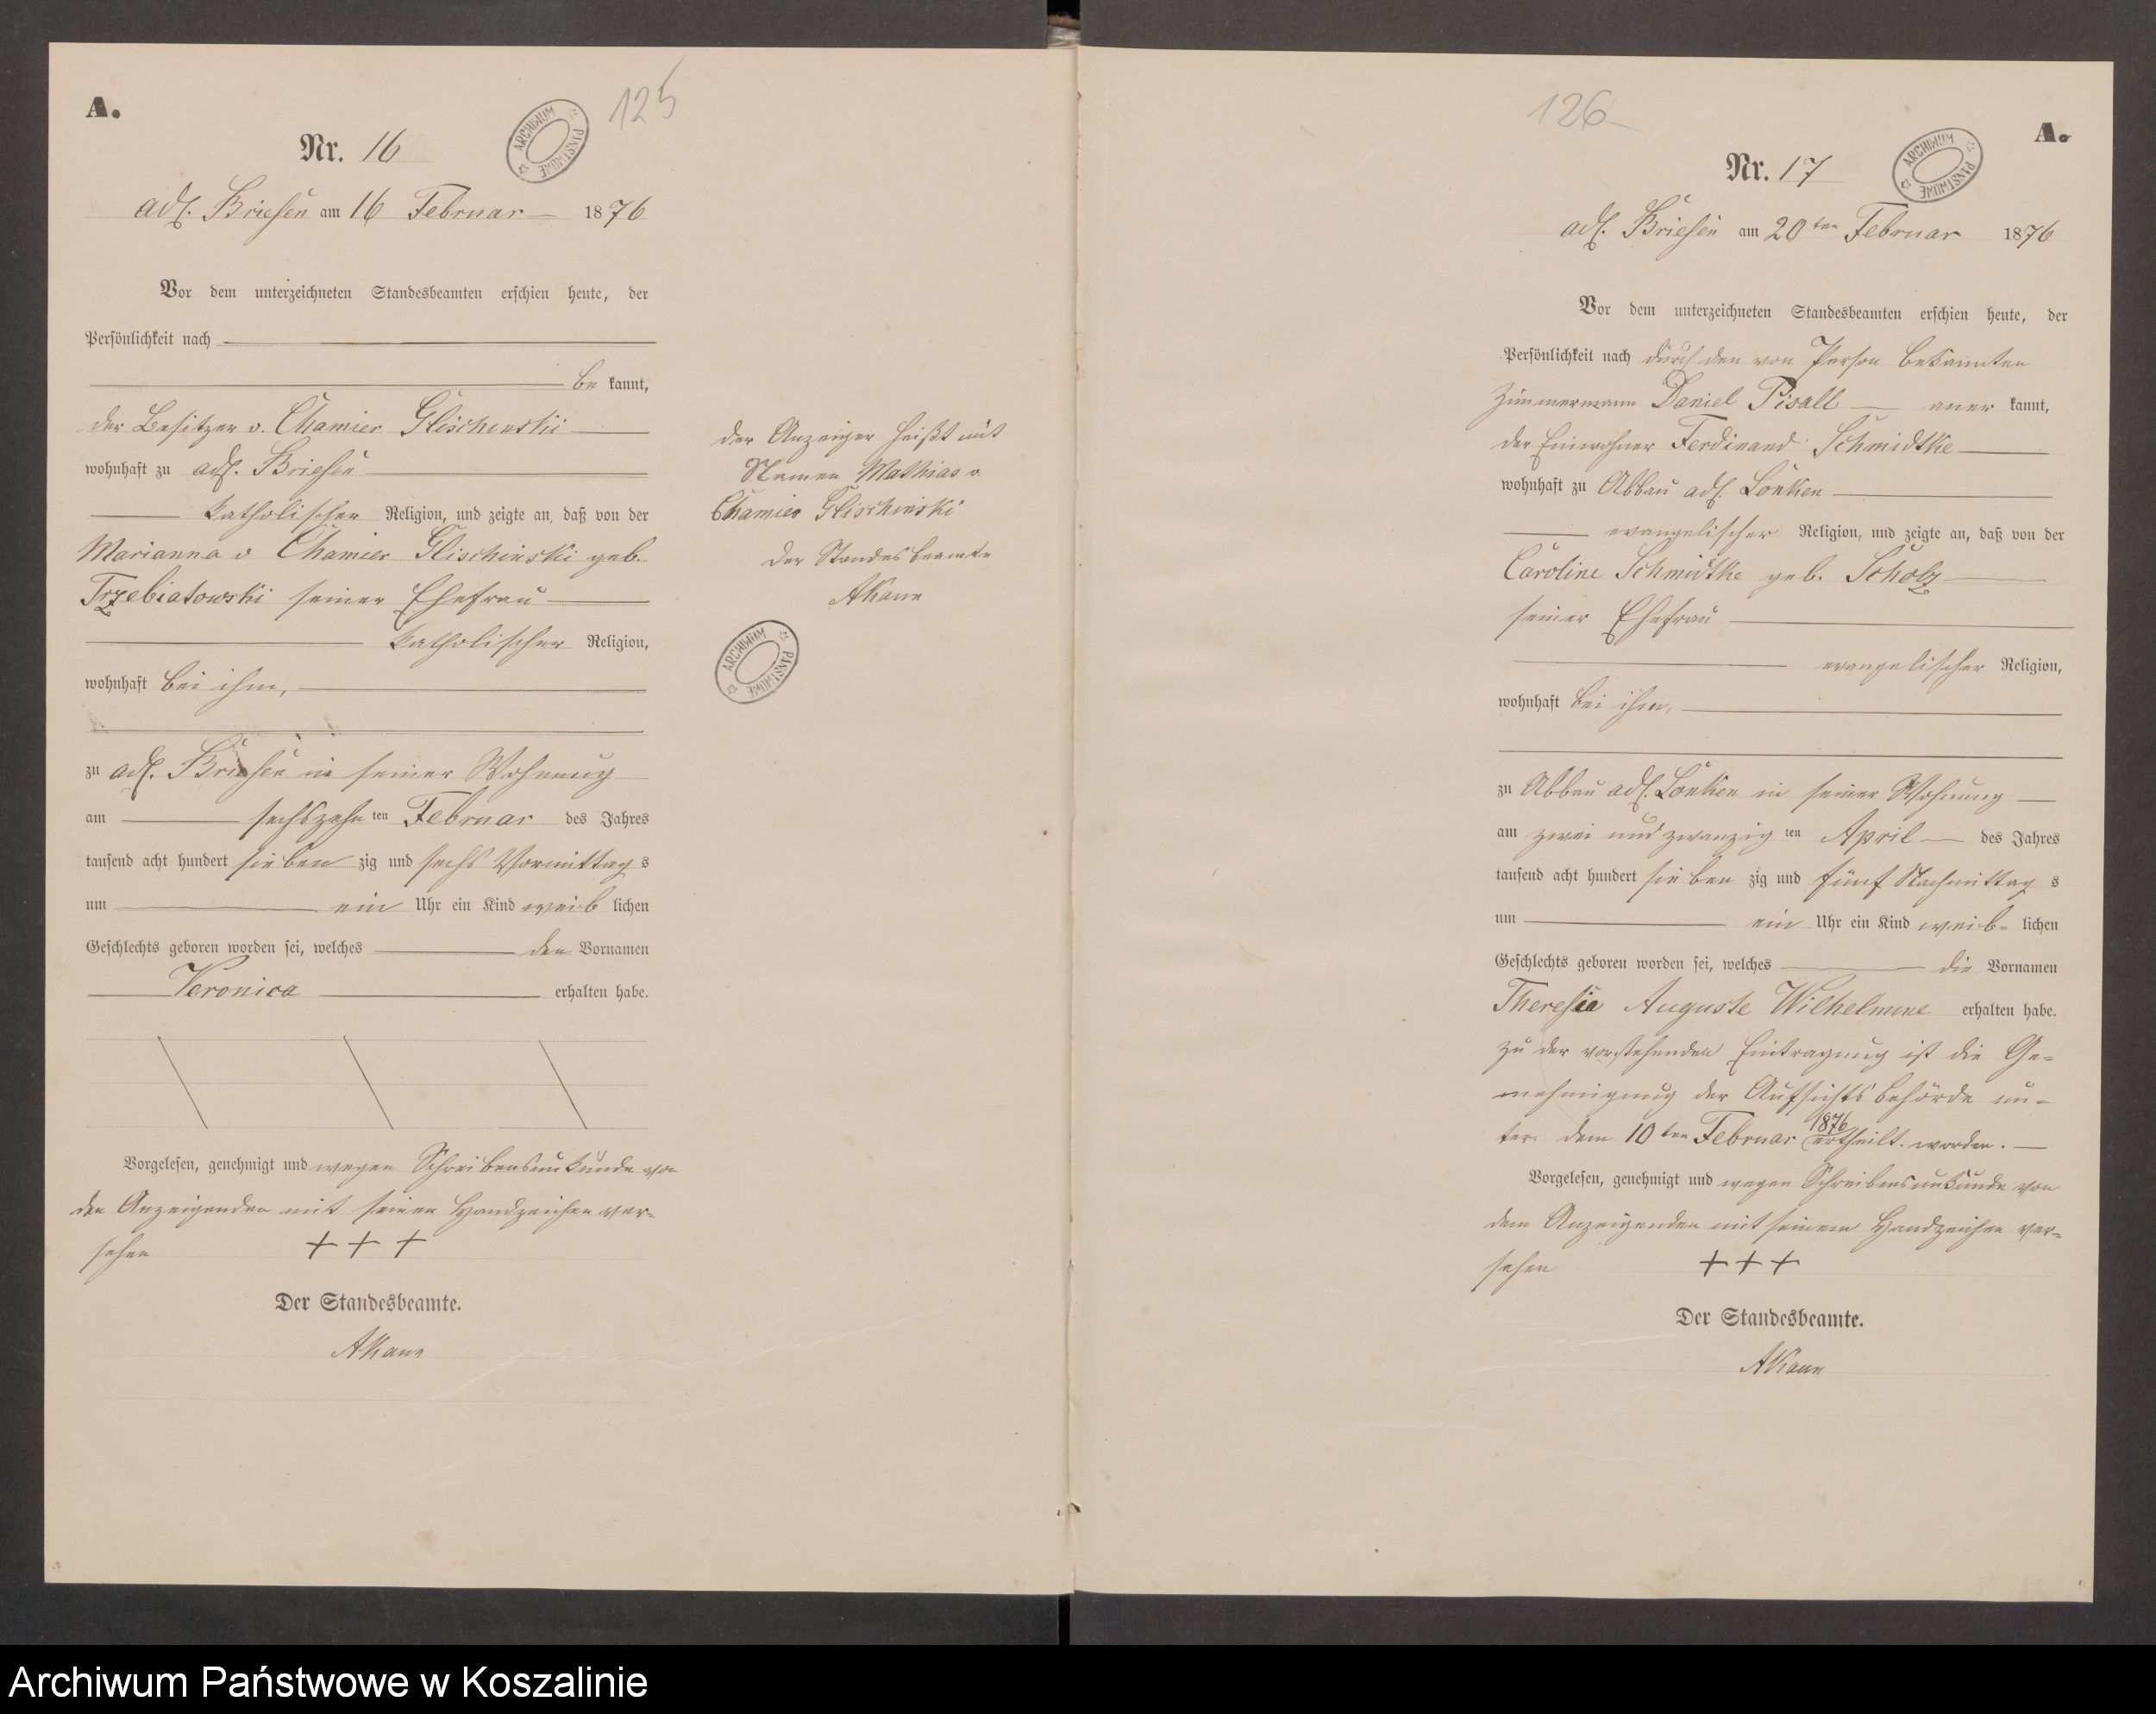 A.
125
Nr. 16
ARCHIWUM PAŃSTWOWE
adl. Briesen am 16 Februar 1876
Vor dem unterzeichneten Standesbeamten erschien heute, der
Persönlichkeit nach
be kannt,
der Besitzer v. Chamier Glischenski
wohnhaft zu adl. Briesen
katholischer Religion, und zeigte an, daß von der
Marianna v Chamier Glischinski geb.
Trzebiatowski seiner Ehefrau
katholischer Religion,
wohnhaft bei ihm,
zu adl. Briesen in seiner Wohnung
am sechszehn ten Februar des Jahres
tausend acht hundert sieben zig und sechs Vormittag s
um ein Uhr ein Kind weib lichen
Geschlechts geboren worden sei, welches den Vornamen
Veronica erhalten habe.
Vorgelesen, genehmigt und wegen Schreibensunkunde von
den Anzeigenden mit seinen Handzeichen ver-
sehen + + +
Der Standesbeamte.
AKann
der Anzeiger heißt mit
Namen Mathias v.
Chamier Glischinski
Der Standesbeamte
AKann
ARCHIWUM PAŃSTWOWE
126
A.
Nr. 17
ARCHIWUM PAŃSTWOWE
adl. Briesen am 20ten Februar 1876
Vor dem unterzeichneten Standesbeamten erschien heute, der
Persönlichkeit nach durch den von Person bekannten
Zimmermann Daniel Pisall aner kannt,
der Einwohner Ferdinand Schmidtke
wohnhaft zu Abbau adl. Lonken
evangelischer Religion, und zeigte an, daß von der
Caroline Schmidtke geb. Scholz
seiner Ehefrau
evangelischer Religion,
wohnhaft bei ihm,
zu Abbau adl. Lonken in seiner Wohnung
am zwei und zwanzig ten April des Jahres
tausend acht hundert sieben zig und fünf Nachmittag s
um ein Uhr ein Kind weib- lichen
Geschlechts geboren worden sei, welches die Vornamen
Theresia Auguste Wilhelmine erhalten habe.
Zu der vorstehenden Eintragung ist die Ge-
nehmigung der Aufsichtsbehörde un-
ter dem 10ten Februar 1876 ertheilt worden.
Vorgelesen, genehmigt und wegen Schreibensunkunde von
dem Anzeigenden mit seinem Handzeichen ver-
sehen + + +
Der Standesbeamte.
AKann
Archiwum Państwowe w Koszalinie